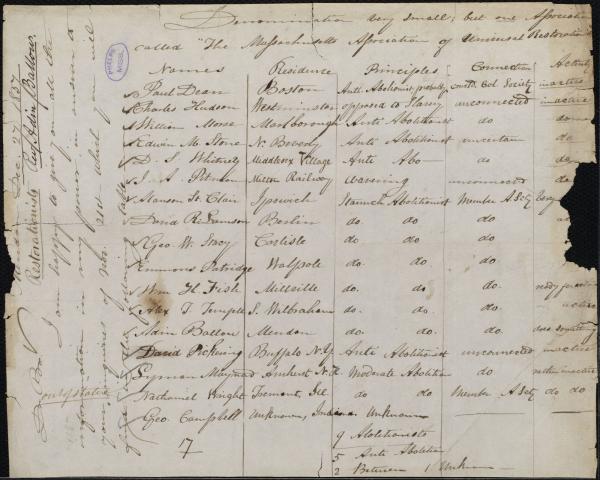 Denomination very small; but one Association
called "The Massachusetts Association of Universal Restorationists
Names Residence Principles Connection Activity
Paul Dean Boston Anti Abolitionist probably Col. Society inactive
Charles Hudson Westminster opposed to Slavery unconnected inactive
William Morse Marlborough Anti Abolitionist do do
Edwin M. Stone N. Beverly Anti Abolitionist uncertain do
D. S. Whitney Middlesex Village Anti Abo do do
Milton Railway wavering unconnected do
Stanson St. Clair Ipswich Staunch Abolitionist Member A S Sety
David R. Lamson Berlin do. do. do
Geo W. Stacy Carlisle do. do. do
Emmons Patridge Walpole do. do. do
Wm H. Fish Millville do. do. do
Alex T. Temple S. Wilbraham do. do. do
Adin Ballou Mendon do. do. do.
David Pickering Buffalo N.Y. Anti Abolitionist unconnected inactive
Lyman Maynard Amherst N.H. Moderate Abolition do rather inactive
Nathaniel Wright Tremont, Ill. do do Member A S Sety do do
Geo. Campbell Unknown, Indiana Unknown
17
9 Abolitionists
5 Anti Abolition
2 Between 1 Unknown
Mendon Dec 27, 1837
Restorationists Rev. Adin Ballou.
Dr Bro
I am happy to give you all the
information in my power in answer to
your inquiries of Nov. 20th which you will
find in the following table